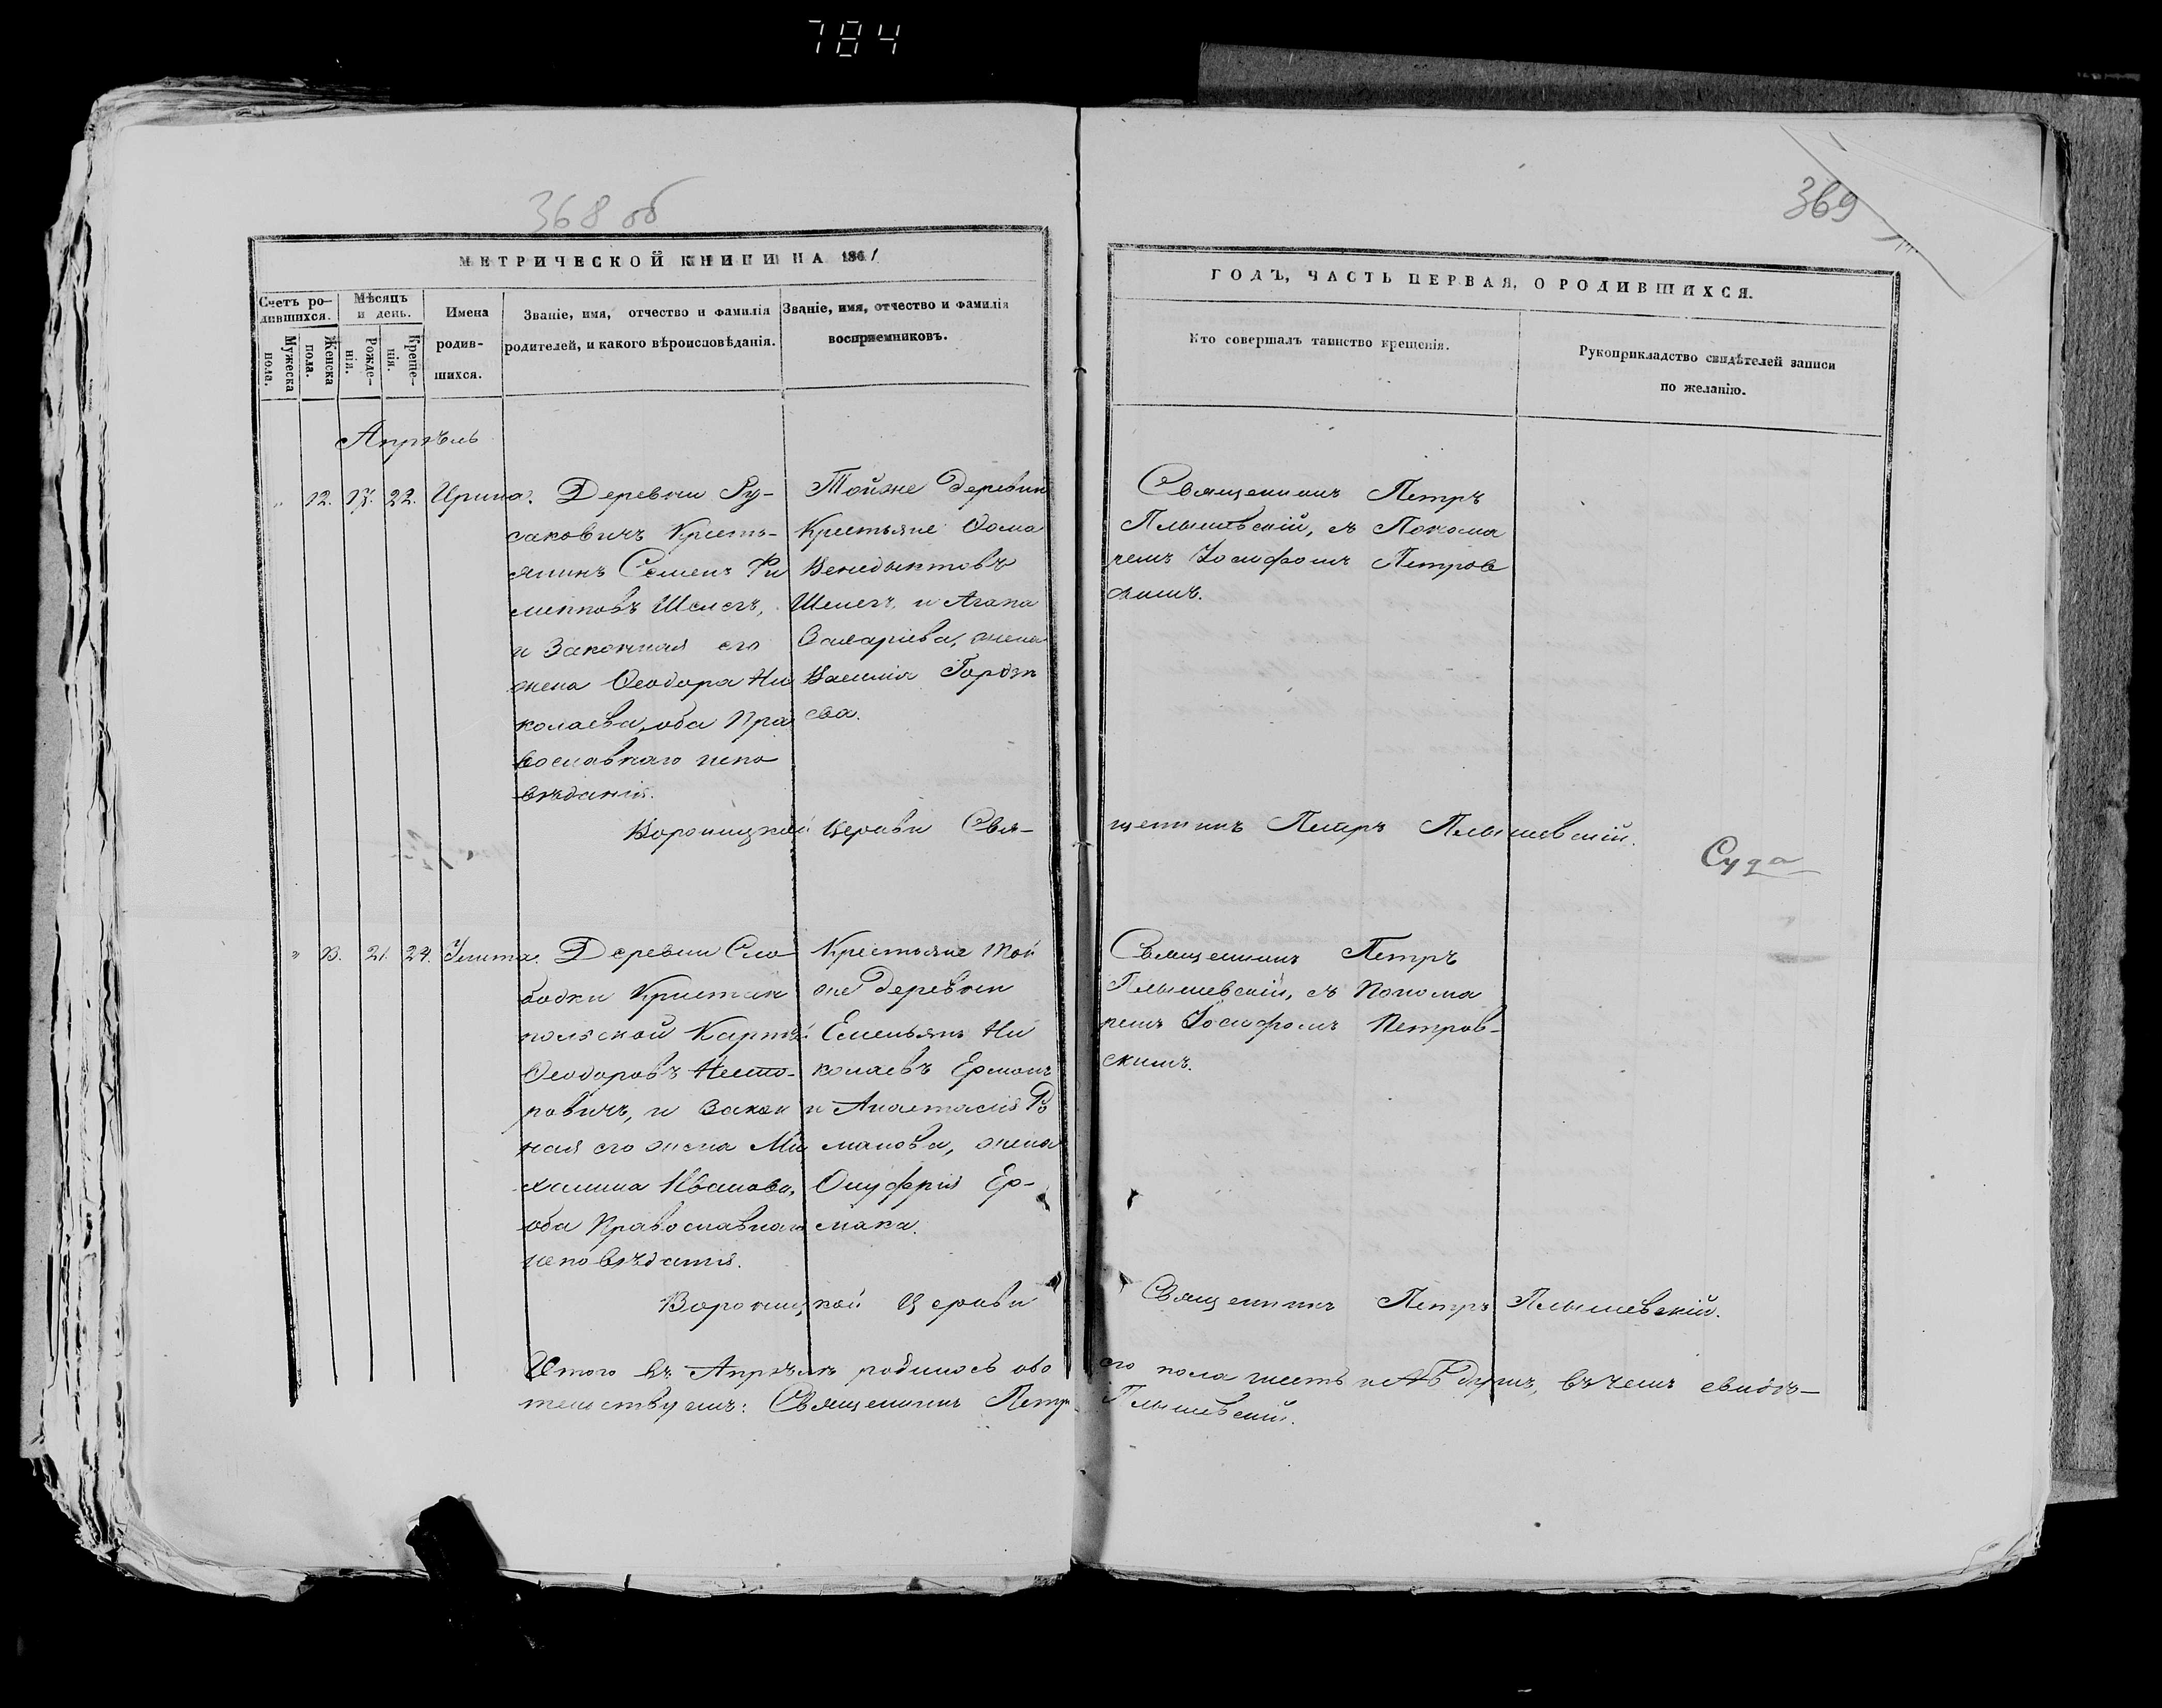 784
368 об
МЕТРИЧЕСКОЙ КНИГИ НА 1861
Счетъ ро-
дившихся.
Мужеска
пола.
Женска
пола.
Мѣсяцъ
и день.
Рожде-
нія.
Креще-
нія.
Имена
родив-
шихся.
Званіе, имя, отчество и фамилія
родителей, и какого вѣроисповѣданія.
Званіе, имя, отчество и фамилія
воспріемниковъ.
Апрѣль
" 12. 17. 22. Ирина.
Деревни Ру-
саковичъ Кресть-
янинъ Семенъ Фи
липповъ Шелегъ,
и Законная его
жена Ѳеодора Ни
колаева, оба Пра
вославнаго испо
вѣданія.
Тойже деревни
Крестьяне Ѳома
Венедыктовъ
Шелегъ, и Агапа
Захаріева, жена
Василія
Вороницкой Церкви Свя-
" 13. 21. 24. Улита.
Деревни Сло
бодки Крестьян
польской
Ѳеодоровъ Несто-
ровичъ, и Закон
ная его жена Ми
халина Иванова,
оба Православнаго
исповѣданія.
Крестьяне той
же деревни
Емельянъ Ни
колаевъ Ермакъ
и Анастасія Ро
манова, жена
Онуфрія Ер-
мака.
Вороницкой Церкви
Итого въ Апрѣлѣ родилось обо
тельствуемъ: Священникъ Петръ
369
ГОДЪ, ЧАСТЬ ПЕРВАЯ, О РОДИВШИХСЯ.
Кто совершалъ таинство крещенія.
Рукоприкладство свидѣтелей записи
по желанію.
Священникъ Петръ
Плышевскій, съ Понома
ремъ Іосифомъ Петров
скимъ.
щенникъ Петръ Плышевскій.
Суда
Священникъ Петръ
Плышевскій, съ Понома
ремъ Іосифомъ Петров-
скимъ.
Священникъ Петръ Плышевскій.
его пола шесть душъ, въ чемъ свидѣ-
Плышевскій.